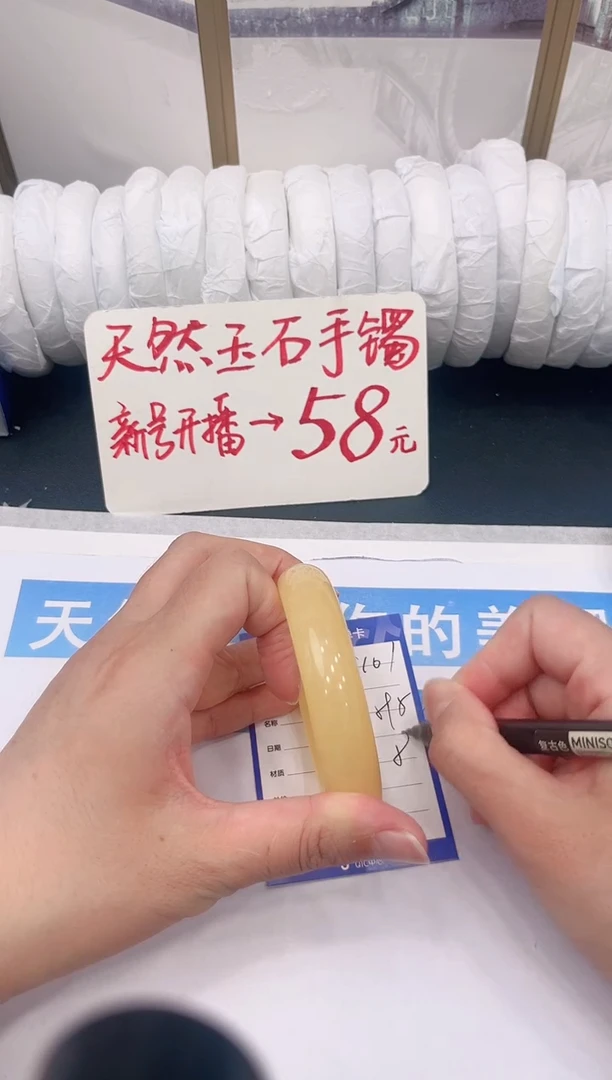 天然玉石手镯
新号开播→58元
天
的美
卡
161
名称
88
日期
8
材质
复古色 MINISO